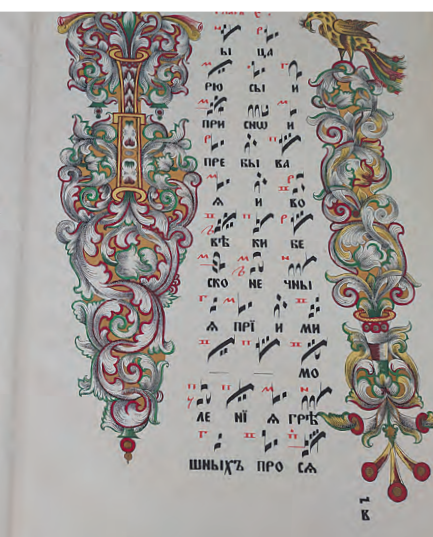 Ы ЦА
РЮ СЫ И
ПРИ СНѠ И
ПРЕ БЫ ВА
Я И ВО
ВѢ КИ БЕ
СКО НЕ ЧНЫ
Я ПРЇ И МИ
МО
ЛЕ НЇ Я ГРѢ
ШНЫХЪ ПРО СѦ
В